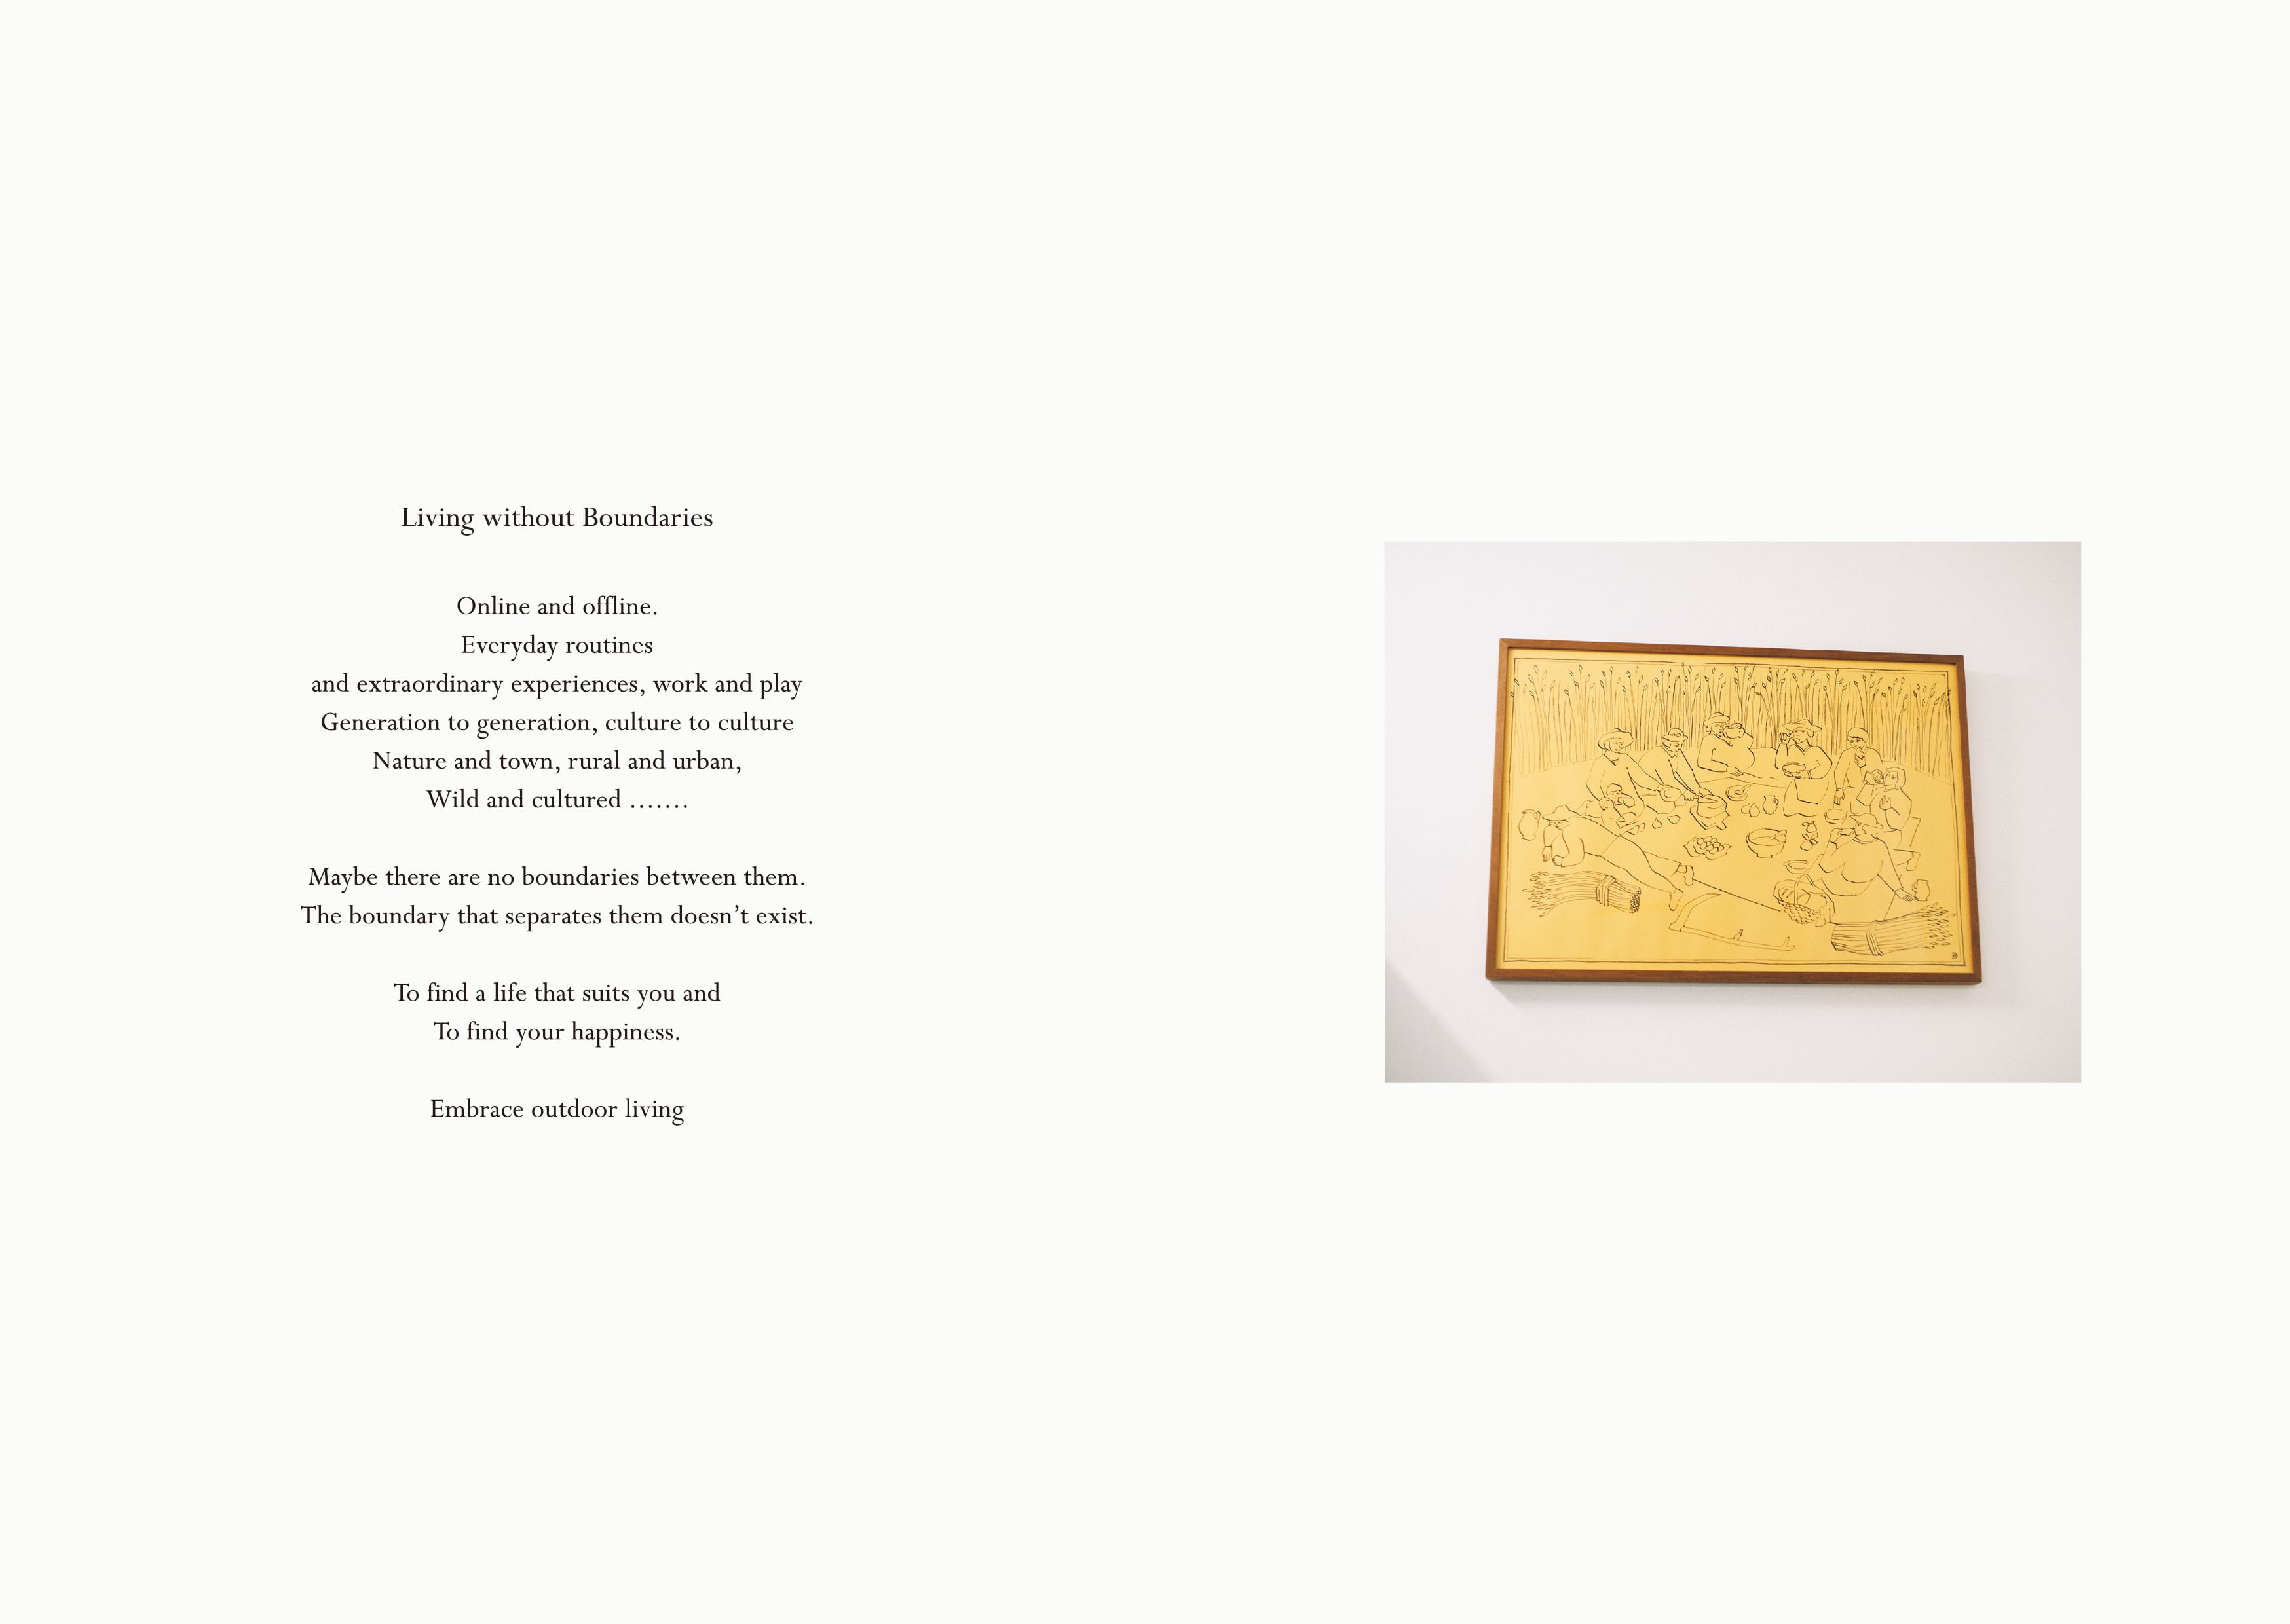 Living without Boundaries
Online and offline.
Everyday routines
and extraordinary experiences, work and play
Generation to generation, culture to culture
Nature and town, rural and urban,
Wild and cultured …….
Maybe there are no boundaries between them.
The boundary that separates them doesn’t exist.
To find a life that suits you and
To find your happiness.
Embrace outdoor living